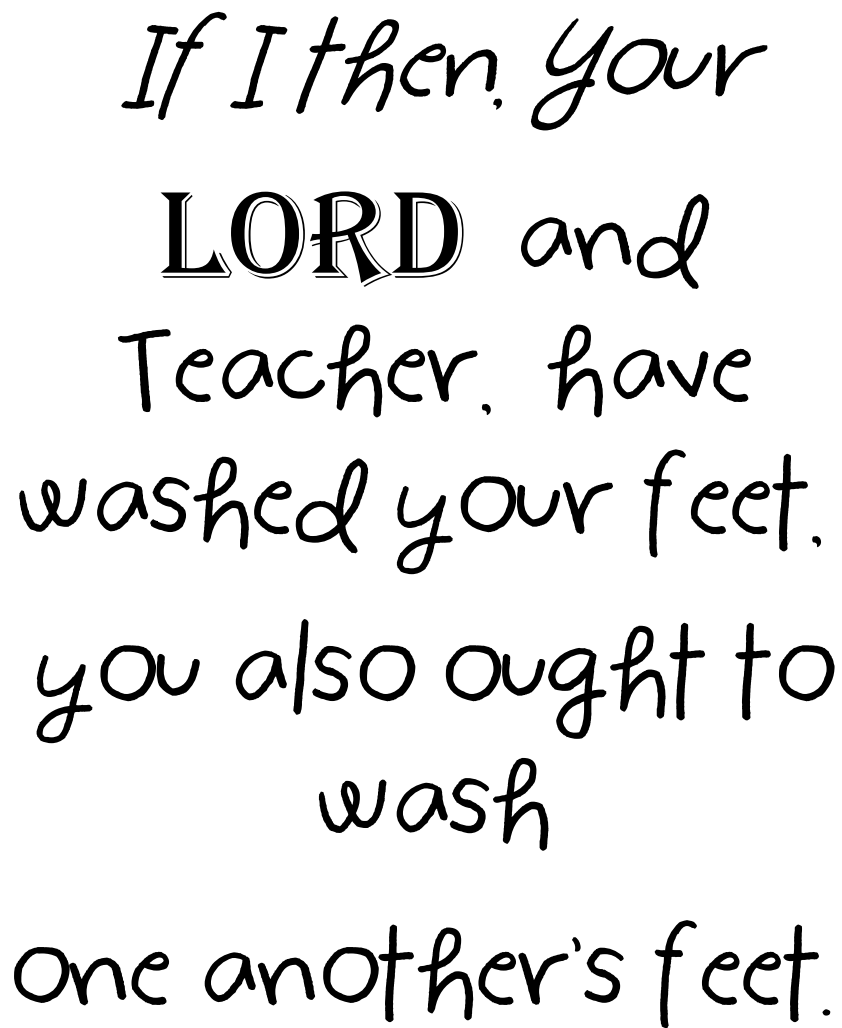 If I then, your
LORD and
Teacher, have
washed your feet,
you also ought to
wash
one another's feet.